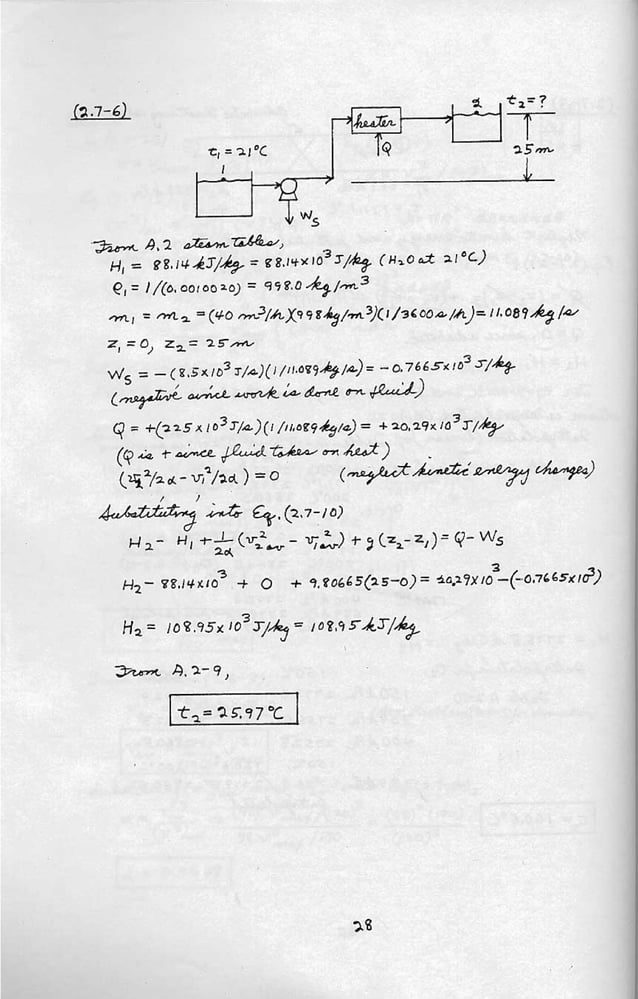 (2.7-6)
heater
2
t₂ = ?
t₁ = 21°C
Q
25 m
1
Ws
From A.2 steam tables,
H₁ = 88.14 kJ/kg = 88.14×10³ J/kg (H₂O at 21°C)
ρ₁ = 1/(0.0010020) = 998.0 kg/m³
m₁ = m₂ = (40 m³/h)(998 kg/m³)(1/3600 s/h) = 11.089 kg/s
z₁ = 0, z₂ = 25 m
Ws = -(8.5×10³ J/s)(1/11.089 kg/s) = -0.7665×10³ J/kg
(negative since work is done on fluid)
Q = +(225×10³ J/s)(1/11.089 kg/s) = +20.29×10³ J/kg
(Q is + since fluid takes on heat)
(v₂²/2α - v₁²/2α) = 0 (neglect kinetic energy changes)
Substituting into Eq. (2.7-10)
H₂ - H₁ + 1/2α (v²₂av - v²₁av) + g(z₂-z₁) = Q - Ws
H₂ - 88.14×10³ + 0 + 9.80665(25-0) = 20.29×10³ - (-0.7665×10³)
H₂ = 108.95×10³ J/kg = 108.95 kJ/kg
From A.2-9,
t₂ = 25.97°C
28